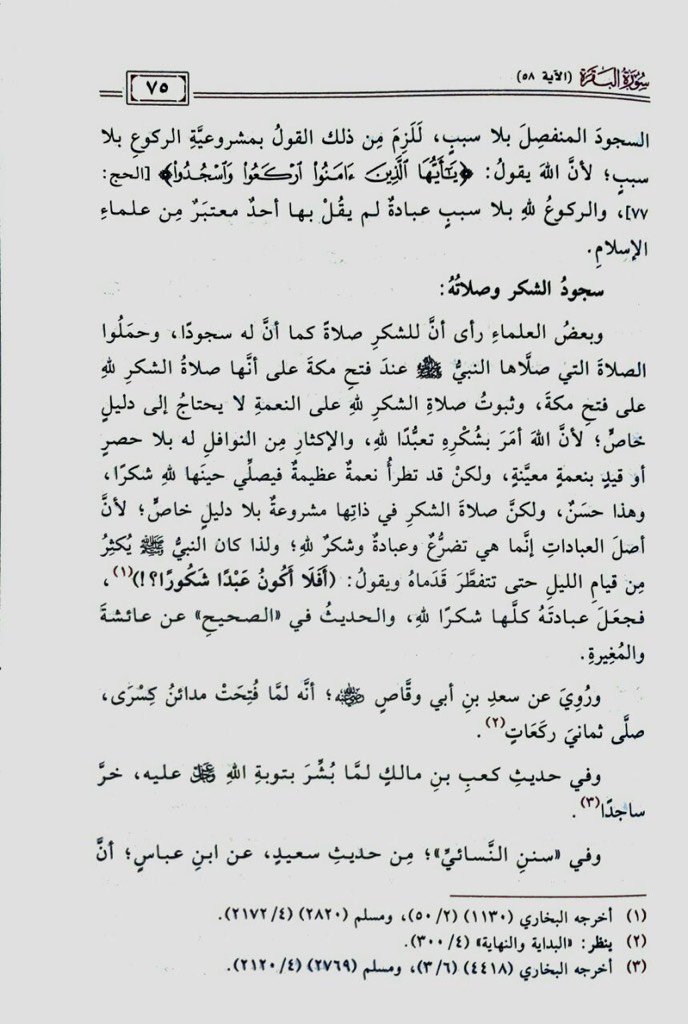 سُورَةُ البَقَرَة (الآية ٥٨)
٧٥
السجودَ المنفصِلَ بلا سببٍ، لَلَزِمَ مِن ذلك القولُ بمشروعيَّةِ الركوعِ بلا
سببٍ؛ لأنَّ اللهَ يقولُ: ﴿يَٰٓأَيُّهَا ٱلَّذِينَ ءَامَنُوا۟ ٱرْكَعُوا۟ وَٱسْجُدُوا۟﴾ [الحج:
٧٧]، والركوعُ للهِ بلا سببٍ عبادةٌ لم يقُلْ بها أحدٌ معتبَرٌ مِن علماءِ
الإسلامِ.
سجودُ الشكر وصلاتُهُ:
وبعضُ العلماءِ رأى أنَّ للشكرِ صلاةً كما أنَّ له سجودًا، وحمَلُوا
الصلاةَ التي صلَّاها النبيُّ ﷺ عندَ فتحِ مكةَ على أنَّها صلاةُ الشكرِ للهِ
على فتحِ مكةَ، وثبوتُ صلاةِ الشكرِ للهِ على النعمةِ لا يحتاجُ إلى دليلٍ
خاصٍّ؛ لأنَّ اللهَ أمَرَ بشُكْرِهِ تعبُّدًا للهِ، والإكثارِ مِن النوافلِ له بلا حصرٍ
أو قيدٍ بنعمةٍ معيَّنةٍ، ولكنْ قد تطرأُ نعمةٌ عظيمةٌ فيصلِّي حينَها للهِ شكرًا،
وهذا حسَنٌ، ولكنَّ صلاةَ الشكرِ في ذاتِها مشروعةٌ بلا دليلٍ خاصٍّ؛ لأنَّ
أصلَ العباداتِ إنَّما هي تضرُّعٌ وعبادةٌ وشكرٌ للهِ؛ ولذا كان النبيُّ ﷺ يُكثِرُ
مِن قيامِ الليلِ حتى تتفطَّرَ قدَماهُ ويقولُ: (أَفَلَا أَكُونُ عَبْدًا شَكُورًا؟!)(١)،
فجعَلَ عبادتَهُ كلَّها شكرًا للهِ، والحديثُ في «الصحيحِ» عن عائشةَ
والمُغِيرةِ.
ورُوِيَ عن سعدِ بنِ أبي وقَّاصٍ رضي الله عنه؛ أنَّه لمَّا فُتِحَتْ مدائنُ كِسْرَى،
صلَّى ثمانيَ ركَعَاتٍ(٢).
وفي حديثِ كعبِ بنِ مالكٍ لمَّا بُشِّرَ بتوبةِ اللهِ عز وجل عليه، خرَّ
ساجدًا(٣).
وفي «سننِ النَّسائيِّ»؛ مِن حديثِ سعيدٍ، عن ابنِ عباسٍ؛ أنَّ
(١) أخرجه البخاري (١١٣٠) (٢/ ٥٠)، ومسلم (٢٨٢٠) (٤/ ٢١٧٢).
(٢) ينظر: «البداية والنهاية» (٤/ ٣٠٠).
(٣) أخرجه البخاري (٤٤١٨) (٦/ ٣)، ومسلم (٢٧٦٩) (٤/ ٢١٢٠).